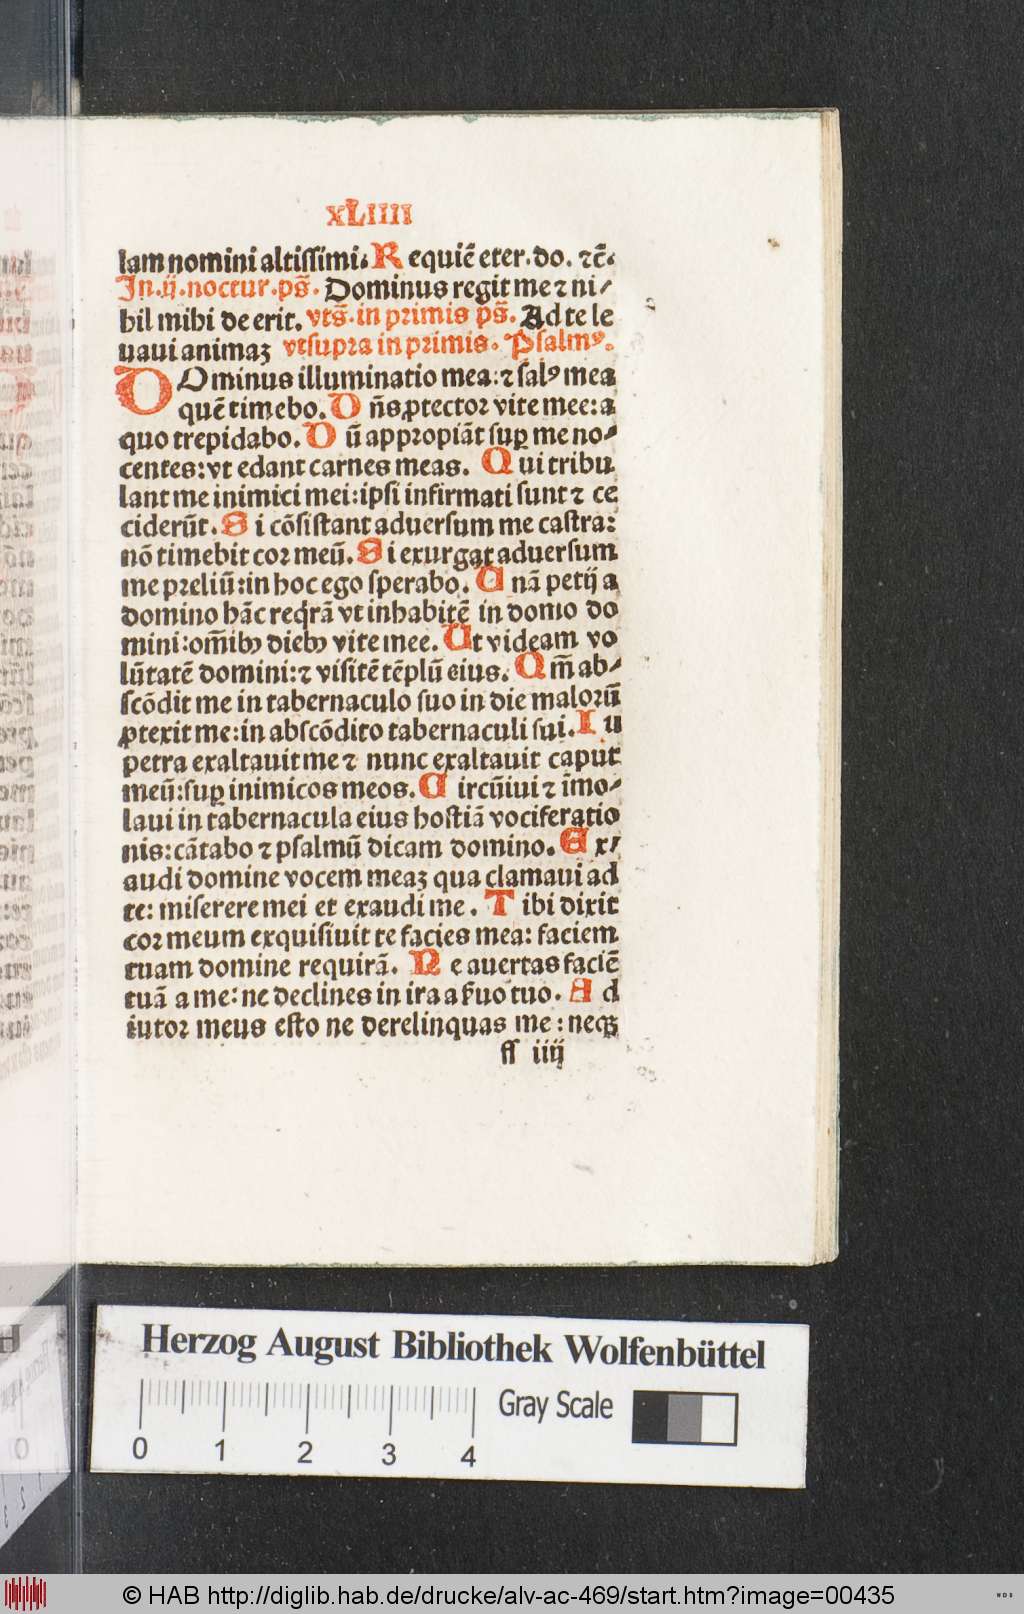 XLIIII
lam nomini altissimi. R equiē eter. do. ⁊ē.
In .ij. noctur. ps̄. Dominus regit me ⁊ ni⸗
hil mihi de erit. vts̄. in primis ps̄. Ad te le
uaui animaꝫ vtsupra in primis. Psalmꝰ.
DOminus illuminatio mea: ⁊ salꝰ mea
quē timebo. D n̄s ꝓtector vite mee: a
quo trepidabo. D ū appropiāt suꝑ me no⸗
centes: vt edant carnes meas. Q ui tribu
lant me inimici mei: ipsi infirmati sunt ⁊ ce
ciderūt. S i cōsistant aduersum me castra:
nō timebit cor meū. S i exurgat aduersum
me preliū: in hoc ego sperabo. U nā petij a
domino hāc reqrā vt inhabitē in domo do
mini: om̄ibꝰ diebꝰ vite mee. Ut videam vo
lūtatē domini: ⁊ visitē tēplū eius. Q m̄ ab⸗
scōdit me in tabernaculo suo in die malorū
ꝓtexit me: in abscōdito tabernaculi sui. I n
petra exaltauit me ⁊ nunc exaltauit caput
meū: suꝑ inimicos meos. C ircūiui ⁊ īmo⸗
laui in tabernacula eius hostiā vociferatio
nis: cātabo ⁊ psalmū dicam domino. E x⸗
audi domine vocem meaꝫ qua clamaui ad
te: miserere mei et exaudi me. T ibi dixit
cor meum exquisiuit te facies mea: faciem
tuam domine requirā. N e auertas faciē
tuā a me: ne declines in ira a ẜuo tuo. A d
iutor meus esto ne derelinquas me: neqꝫ
ff iiij
Herzog August Bibliothek Wolfenbüttel
Gray Scale
0 1 2 3 4
© HAB http://diglib.hab.de/drucke/alv-ac-469/start.htm?image=00435